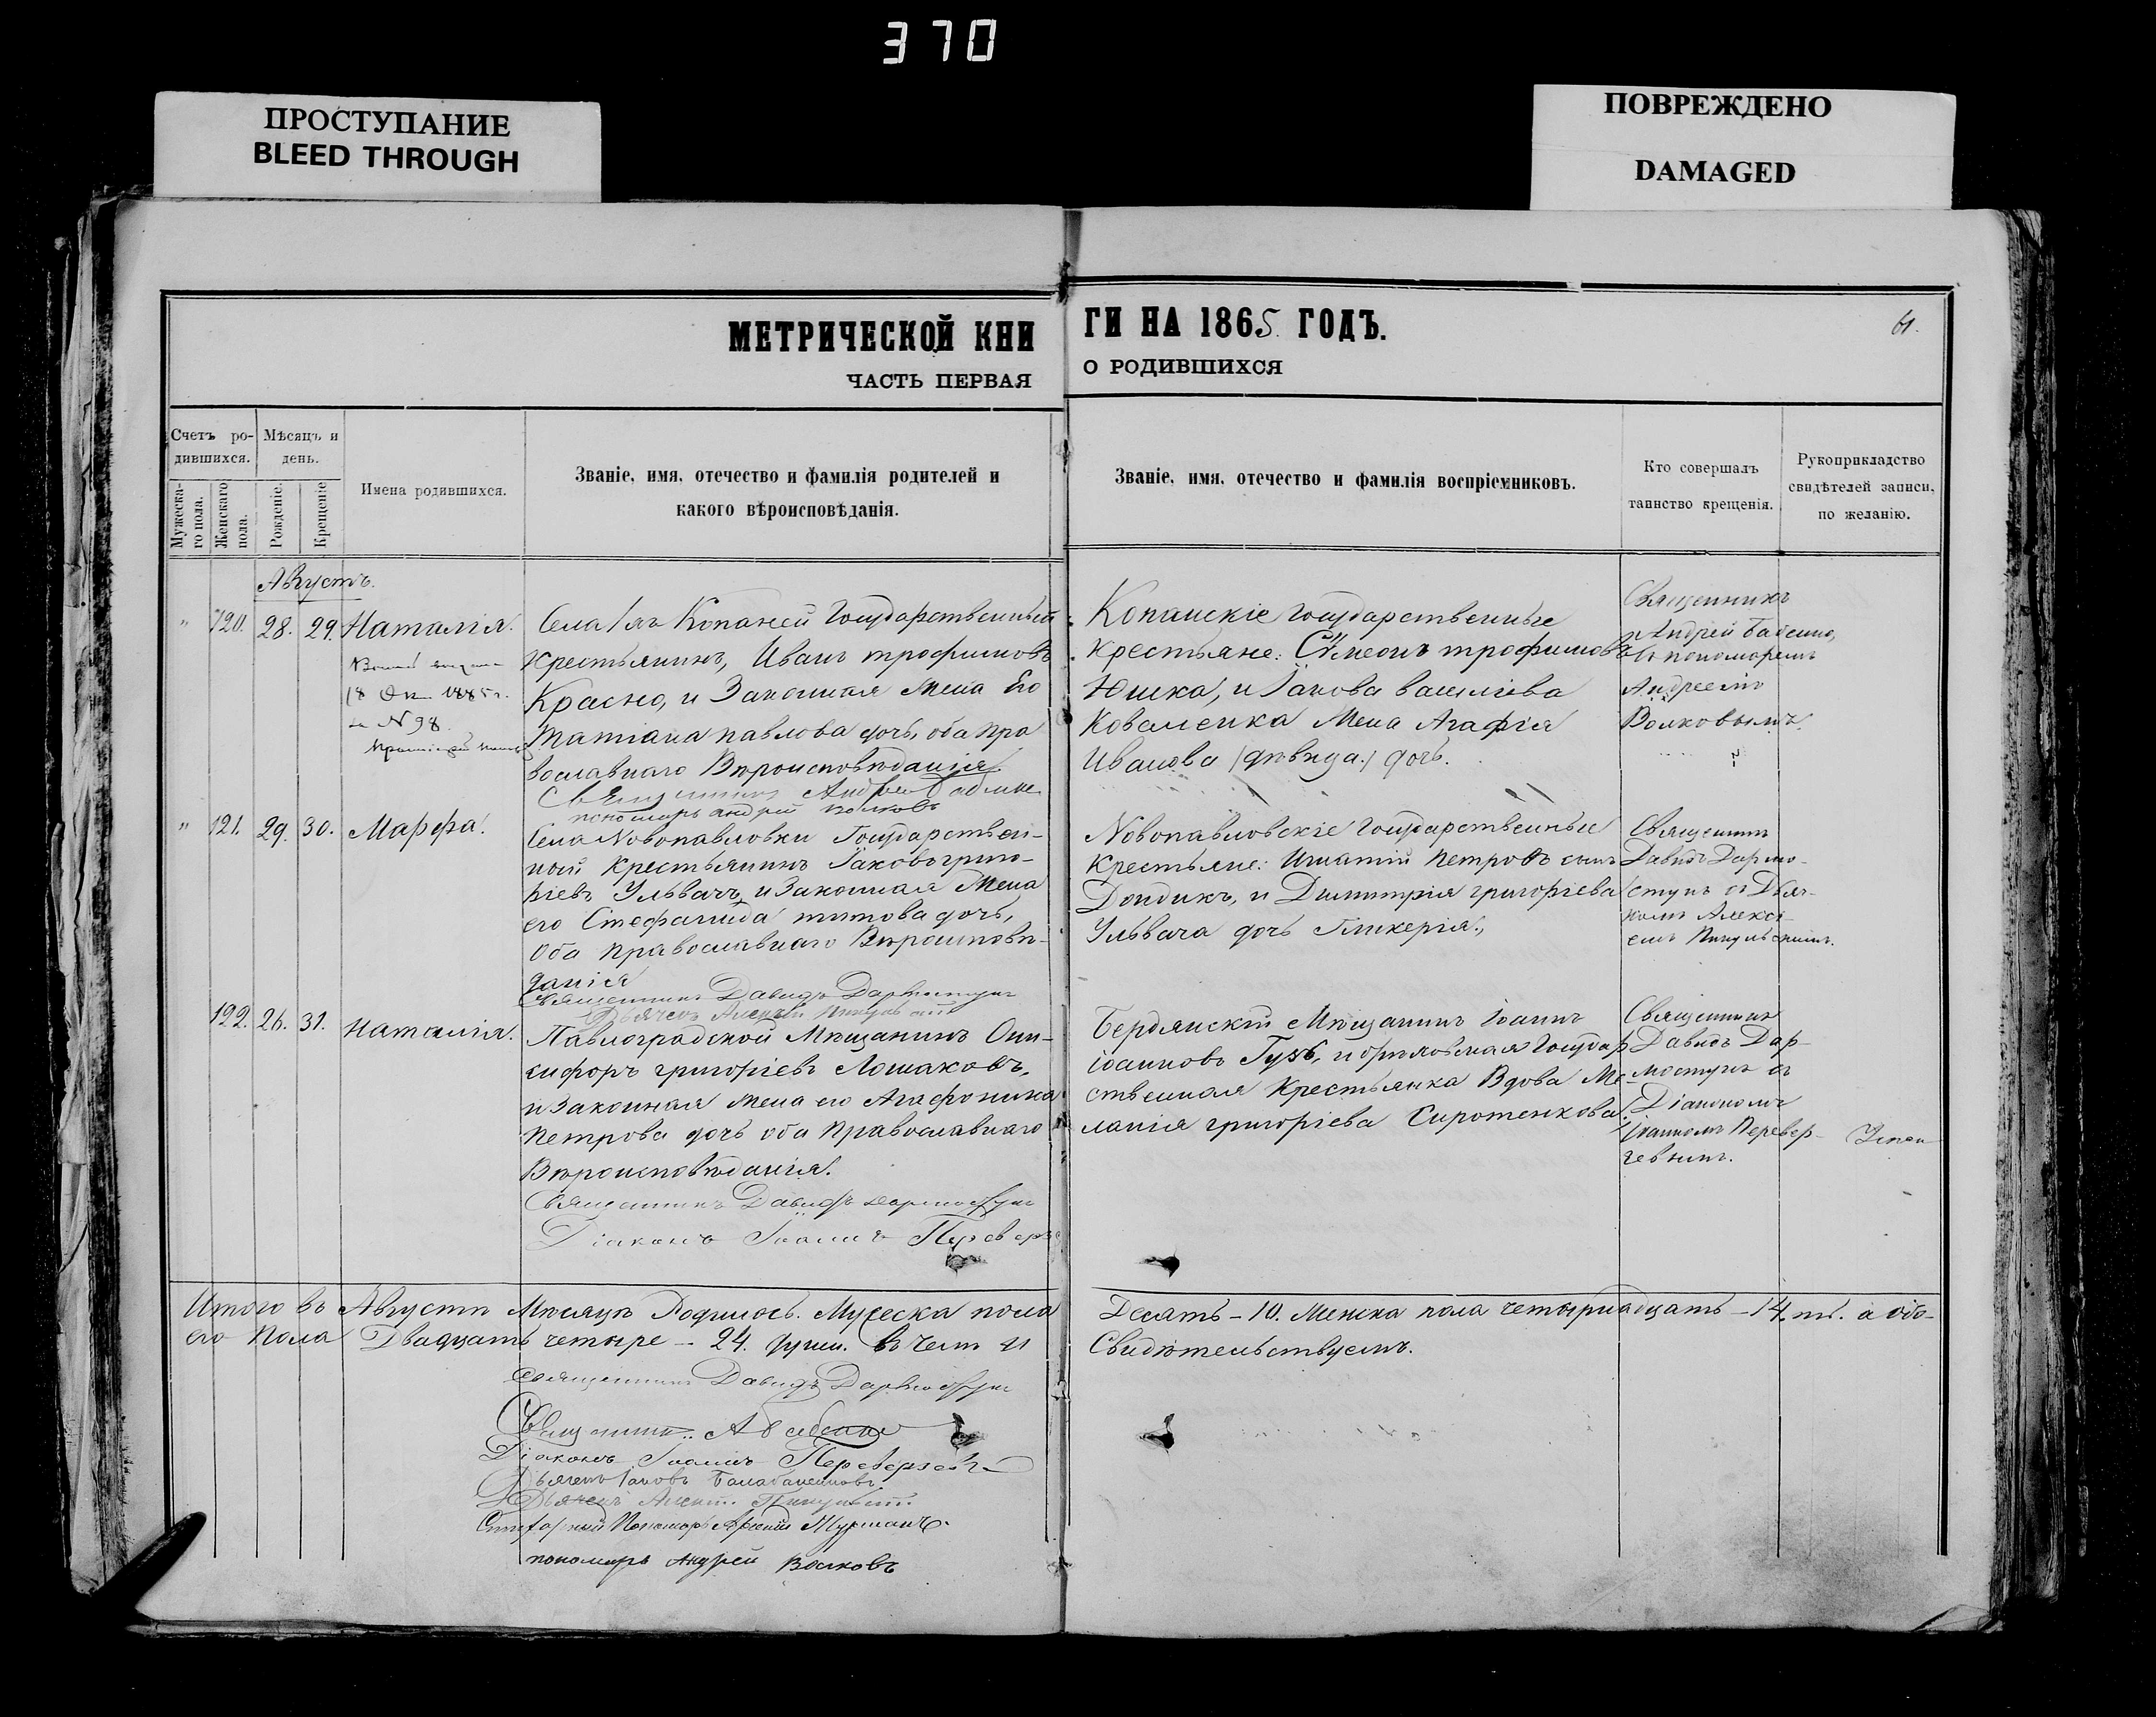 370
ПРОСТУПАНИЕ
BLEED THROUGH
ПОВРЕЖДЕНО
DAMAGED
МЕТРИЧЕСКОЙ КНИ
ГИ НА 1865 ГОДЪ.
61.
ЧАСТЬ ПЕРВАЯ
О РОДИВШИХСЯ
Счетъ ро-
дившихся.
Мужеска-
го пола.
Женскаго
пола.
Мѣсяцъ и
день.
Рожденіе.
Крещеніе
Имена родившихся.
Званіе, имя, отечество и фамилія родителей и
какого вѣроисповѣданія.
Званіе, имя, отечество и фамилія воспріемниковъ.
Кто совершалъ
таинство крещенія.
Рукоприкладство
свидѣтелей записи,
по желанію.
Августъ.
" 120. 28. 29. Наталія.
18 1885 г.
№ 98.
Села Копаней Государственный
Крестьянинъ, Иванъ трофимовъ
Красно, и Законная Жена Его
Татіана павлова дочь, оба пра
вославнаго Вѣроисповѣданія
Священникъ Андрей
пономарь андрей волковъ
Копанскіе Государственные
Крестьяне: Сѵмеонъ трофимовъ
Юшка, и Іакова василіева
Коваленка Жена Агафія
Иванова /дѣвица./ дочь.
Священникъ
Андрей Бабенко,
съ пономаремъ
Андреемъ
Волковымъ.
" 121. 29. 30. Марфа.
Села Новопавловки Государствен-
ный Крестьянинъ Іаковъ григо-
ріевъ Ульвачъ, и Законная Жена
его Стефанида титова дочь,
Оба православнаго Вѣроисповѣ-
данія
Священникъ Давидъ Дармоступъ
Дьячекъ Алексѣй
Новопавловскіе Государственные
Крестьяне: Игнатій Петровъ сынъ
Дондикъ, и Димитрія григоріева
Ульвача дочь Гликерія.,
Священникъ
Давидъ Дармо-
ступъ съ Дьяч-
комъ Алексѣ-
емъ
122. 26. 31. Наталія.
Павлоградской Мѣщанинъ Они-
сифоръ григоріевъ Лошаковъ,
и Законная Жена его Агафоника
Петрова дочь оба Православнаго
Вѣроисповѣданія.
Священникъ Давидъ Дармоступъ
Діаконъ Іоаннъ
Бердянскій Мѣщанинъ Іоаннъ
Іоанновъ и Государ
ственная Крестьянка Вдова Ме-
ланія григоріева Сиротенкова.
Священникъ
Давидъ Дар-
моступъ съ
Діакономъ
Іоанномъ Перевер-
зевымъ.
Итого въ Августѣ Мѣсяцѣ Родилось. Мужеска пола
Десять – 10. Женска пола четырнадцать – 14.
его Пола Двадцать четыре – 24. души. въ чемъ и
Свидѣтельствуемъ.
Священникъ Давидъ Дармоступъ
Священникъ
Діаконъ Іоаннъ Переверзевъ
Дьячекъ Іаковъ
Дьячекъ Алексѣй
Пономарь
пономарь Андрей Волковъ